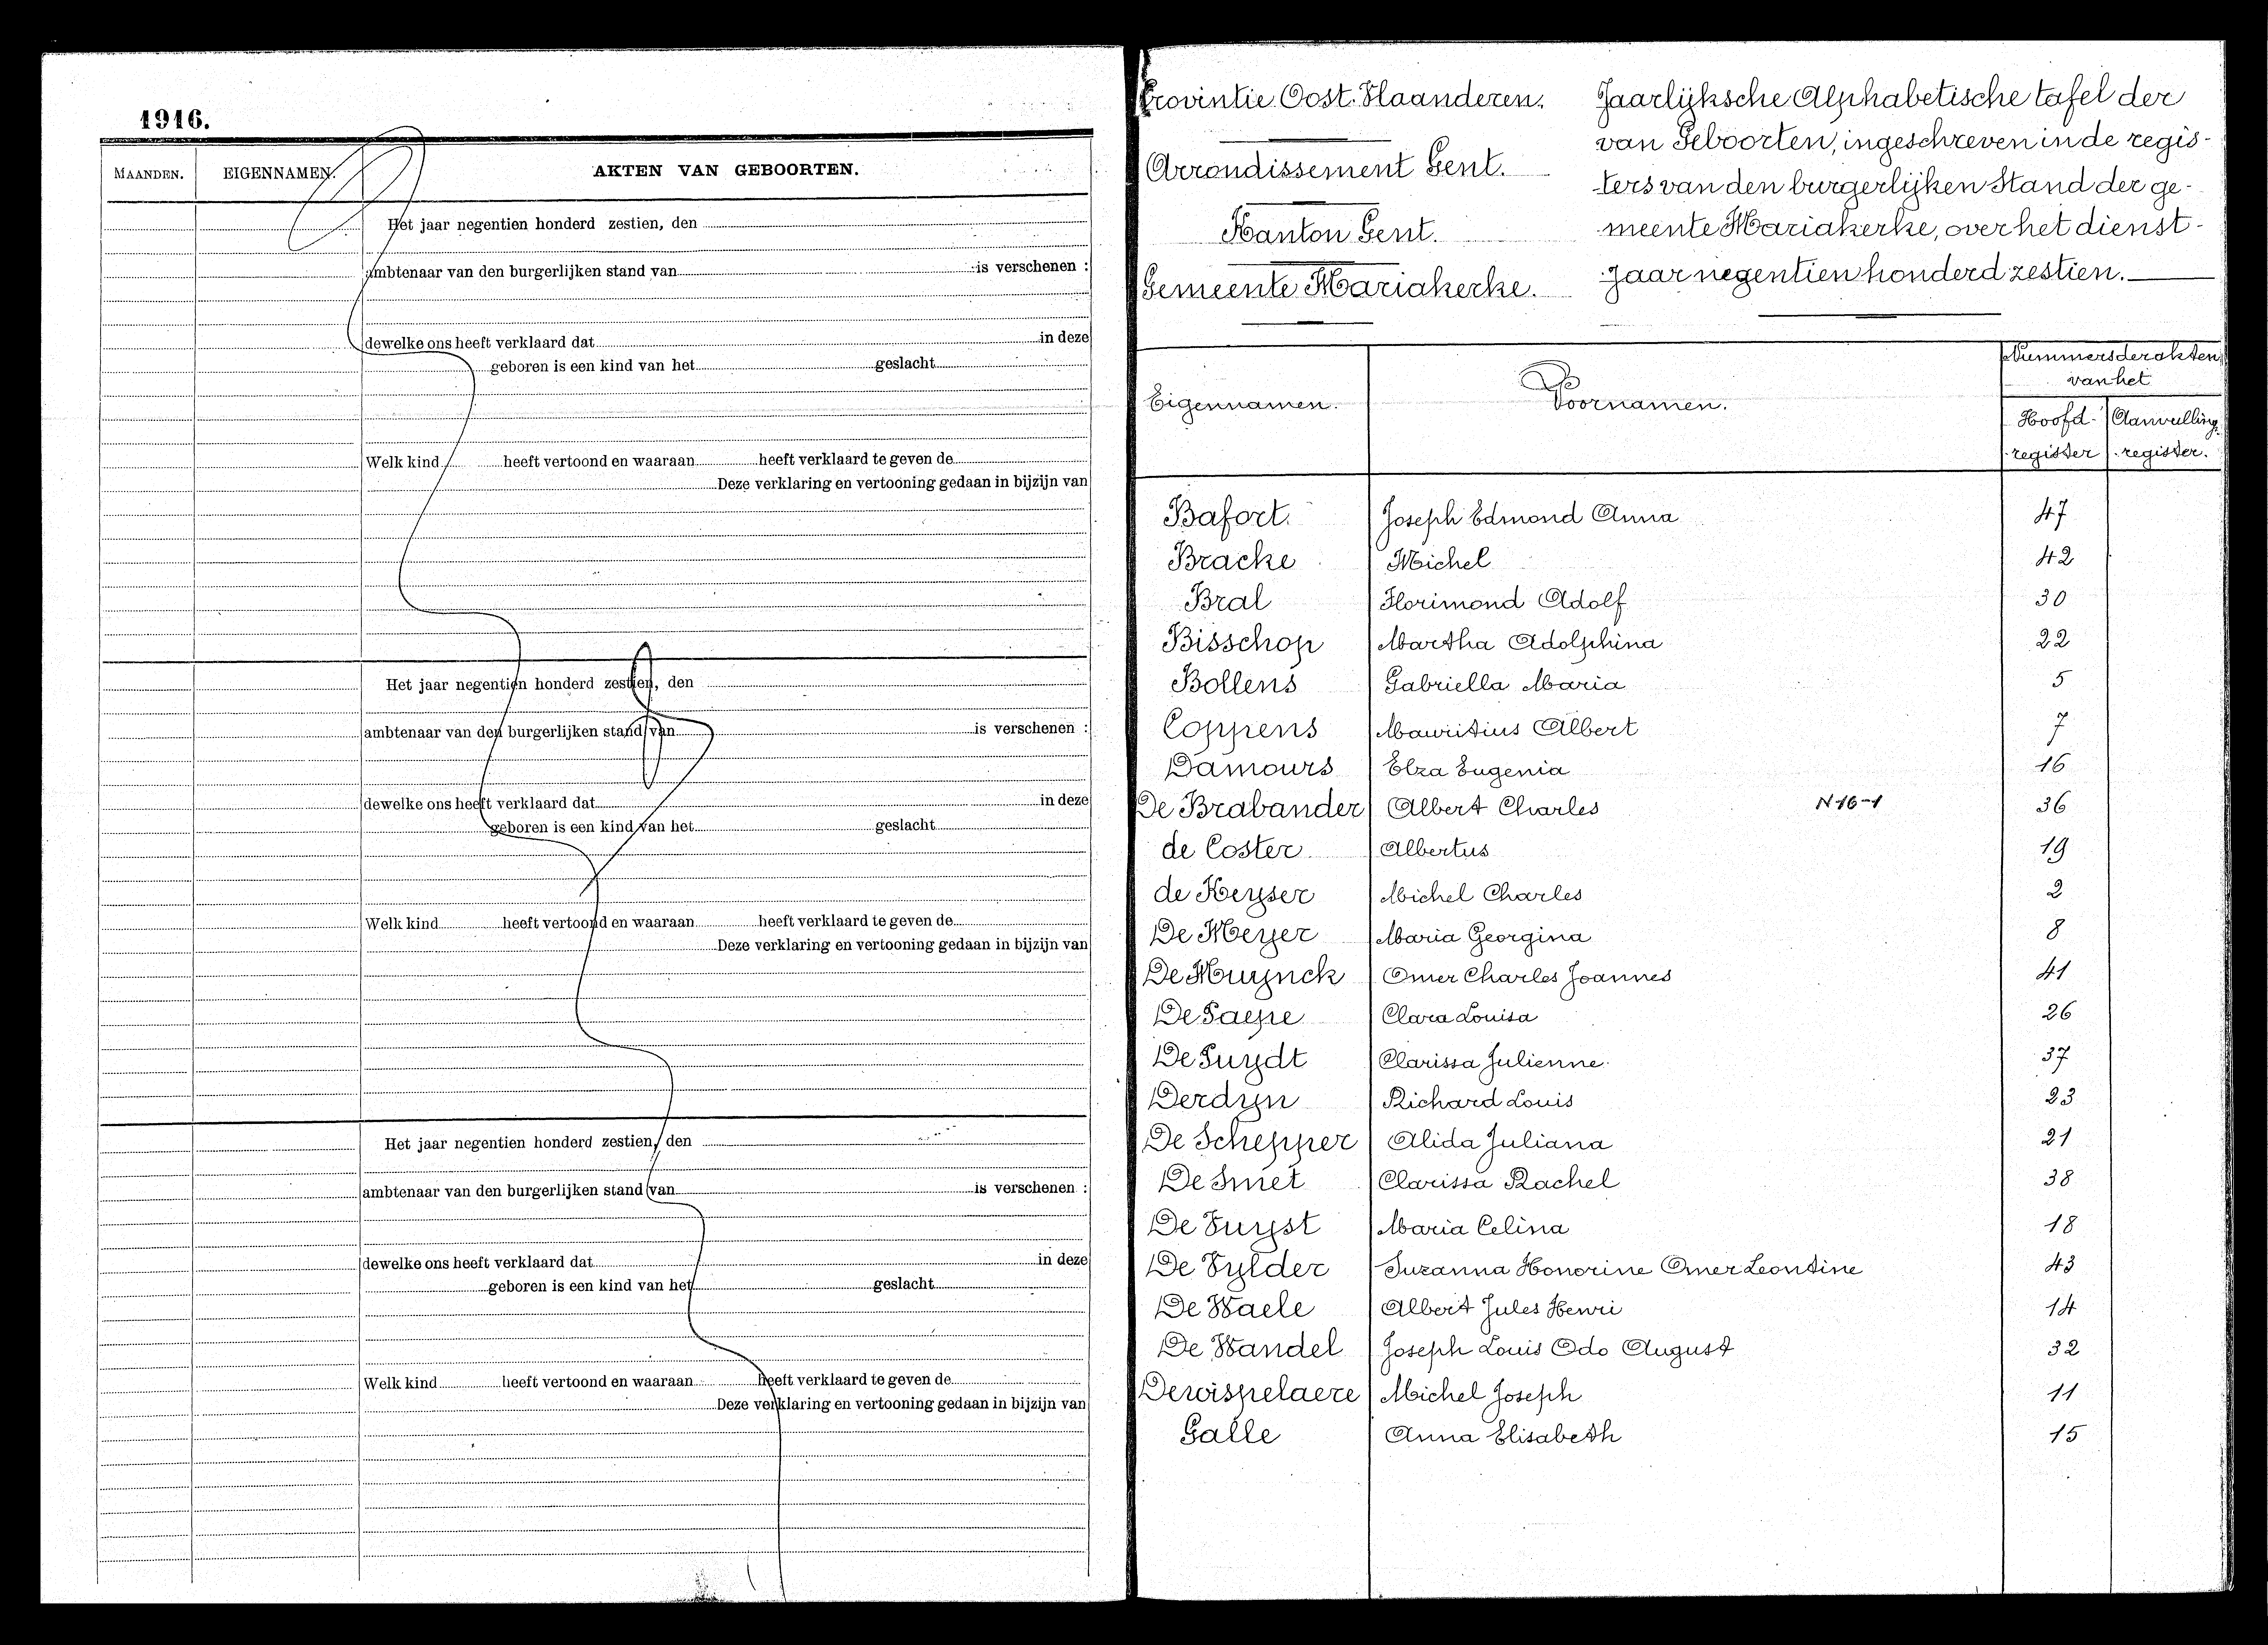 1916.
MAANDEN. EIGENNAMEN. AKTEN VAN GEBOORTEN.
Het jaar negentien honderd zestien, den
ambtenaar van den burgerlijken stand van is verschenen :
dewelke ons heeft verklaard dat in deze
geboren is een kind van het geslacht
Welk kind heeft vertoond en waaraan heeft verklaard te geven de
Deze verklaring en vertooning gedaan in bijzijn van
Het jaar negentien honderd zestien, den
ambtenaar van den burgerlijken stand van is verschenen :
dewelke ons heeft verklaard dat in deze
geboren is een kind van het geslacht
Welk kind heeft vertoond en waaraan heeft verklaard te geven de
Deze verklaring en vertooning gedaan in bijzijn van
Het jaar negentien honderd zestien, den
ambtenaar van den burgerlijken stand van is verschenen :
dewelke ons heeft verklaard dat in deze
geboren is een kind van het geslacht
Welk kind heeft vertoond en waaraan heeft verklaard te geven de
Deze verklaring en vertooning gedaan in bijzijn van
Provintie Oost. Vlaanderen.
Arrondissement Gent.
Kanton Gent.
Gemeente Mariakerke.
Jaarlijksche Alphabetische tafel der
van Geboorten, ingeschreven in de regis-
ters van den burgerlijken Stand der ge-
meente Mariakerke, over het dienst-
jaar negentien honderd zestien.
Eigennamen. Voornamen. Nummers der akten
van het
Hoofd- Aanvulling
register register.
Bafort. Joseph Edmond Anna 47
Bracke Michel 42
Bral Florimond Adolf 30
Bisschop Martha Adolphina 22
Bollens Gabriella Maria 5
Coppens Mauritius Albert 7
Damours Elza Eugenia 16
De Brabander Albert Charles N 16-1 36
de Coster Albertus 19
de Keyser Michel Charles 2
De Meyer Maria Georgina 8
De Muynck Omer Charles Joannes 41
De Paepe Clara Louisa 26
De Puydt Clarissa Julienne 37
Derdyn Richard Louis 23
De Schepper Alida Juliana 21
De Smet Clarissa Rachel 38
De Vuyst Maria Celina 18
De Vylder Suzanna Honorine Omer Leontine 43
De Waele Albert Jules Henri 14
De Wandel Joseph Louis Odo August 32
Dewispelaere Michel Joseph 11
Galle Anna Elisabeth 15